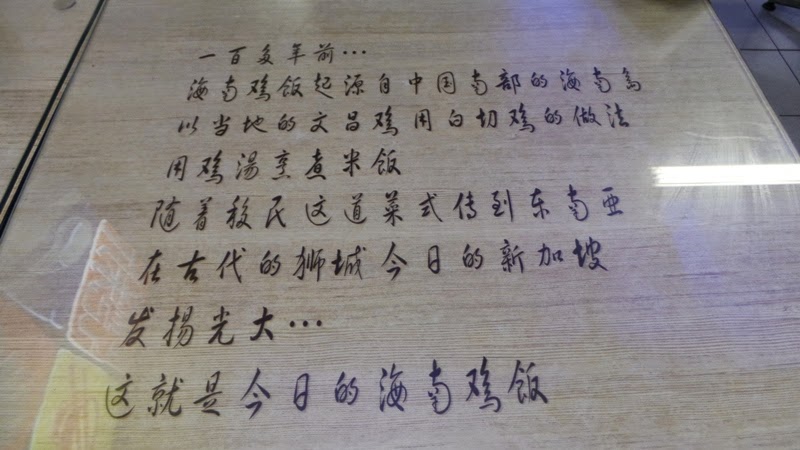 一百多年前…
海南鸡饭起源自中国南部的海南岛
以当地的文昌鸡用白切鸡的做法
用鸡湯烹煮米饭
随着移民这道菜式传到东南亚
在古代的狮城今日的新加坡
发揚光大…
这就是今日的海南鸡饭